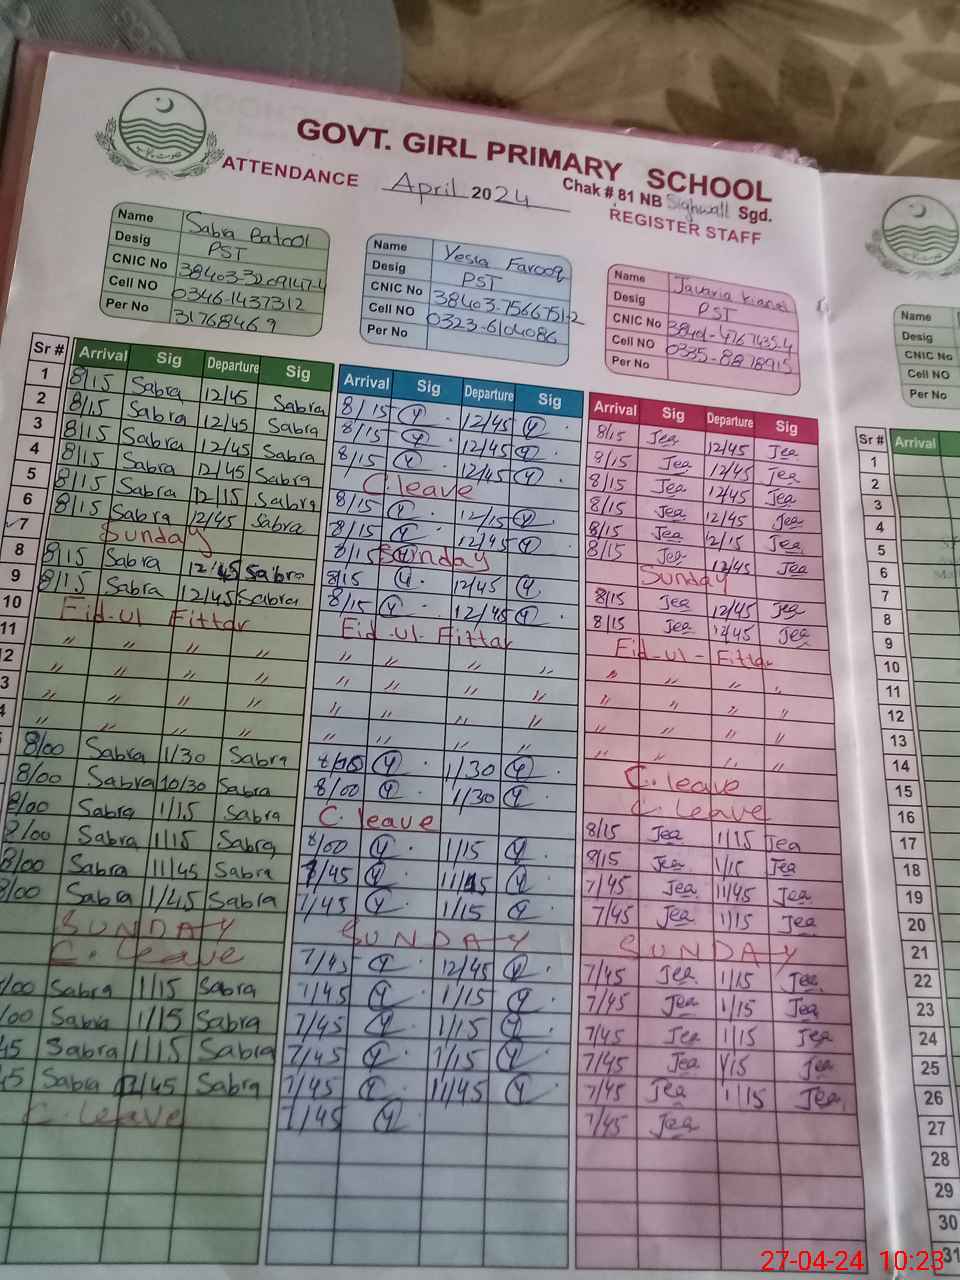 GOVT. GIRL PRIMARY SCHOOL
ATTENDANCE April 2024 Chak # 81 NB Sighwall Sgd.
REGISTER STAFF
Name Sabra Batool
Desig PST
CNIC No
Cell NO 0346-1437312
Per No 31768469
Name Yesra Farooq
Desig PST
CNIC No 38403-7566751-2
Cell NO 0323-6104086
Per No
Name Javaria
Desig PST
CNIC No
Cell NO 0335-8878915
Per No
Sr # Arrival Sig Departure Sig Arrival Sig Departure Sig Arrival Sig Departure Sig
1 8/15 Sabra 12/45 Sabra 8/15 Y 12/45 Y 8/15 Jea 12/45 Jea
2 8/15 Sabra 12/45 Sabra 8/15 Y 12/45 Y 8/15 Jea 12/45 Jea
3 8/15 Sabra 12/45 Sabra 8/15 Y 12/45 Y 8/15 Jea 12/45 Jea
4 8/15 Sabra 12/45 Sabra C.leave 8/15 Jea 12/45 Jea
5 8/15 Sabra 12/15 Sabra 8/15 Y 12/15 Y 8/15 Jea 12/15 Jea
6 8/15 Sabra 12/45 Sabra 8/15 Y 12/45 Y 8/15 Jea 12/45 Jea
7 Sunday 8/15 Sunday Sunday
8 8/15 Sabra 12/45 Sabra 8/15 Y 12/45 Y 8/15 Jea 12/45 Jea
9 8/15 Sabra 12/45 Sabra 8/15 Y 12/45 Y 8/15 Jea 12/45 Jea
10 Eid-ul Fittar Eid-ul-Fittar Eid-ul-Fittar
11 " " " " " " " " " "
12 " " " " " " " " " " "
3 " " " " " " " " " " "
4 " " " " " " " " " " "
8/00 Sabra 1/30 Sabra Y 1/30 Y C.leave
8/00 Sabra 10/30 Sabra 8/00 Y 1/30 Y C.leave
8/00 Sabra 1/15 Sabra C.leave 8/15 Jea 1/15 Jea
8/00 Sabra 1/15 Sabra 8/00 Y 1/15 Y 8/15 Jea 1/15 Jea
8/00 Sabra 11/45 Sabra 7/45 Y 11/45 Y 7/45 Jea 11/45 Jea
8/00 Sabra 1/45 Sabra 7/45 Y 1/15 Y 7/45 Jea 1/15 Jea
SUNDAY SUNDAY SUNDAY
C.leave 7/45 Y 12/45 Y 7/45 Jea 1/15 Jea
/00 Sabra 1/15 Sabra 7/45 Y 1/15 Y 7/45 Jea 1/15 Jea
/00 Sabra 1/15 Sabra 7/45 Y 1/15 Y 7/45 Jea 1/15 Jea
45 Sabra 1/15 Sabra 7/45 Y 1/15 Y 7/45 Jea 1/15 Jea
45 Sabra 11/45 Sabra 7/45 Y 11/45 Y 7/45 Jea 1/15 Jea
C.leave 7/45 Y 7/45 Jea
Name
Desig
CNIC No
Cell NO
Per No
Sr # Arrival
1
2
3
4
5
6
7
8
9
10
11
12
13
14
15
16
17
18
19
20
21
22
23
24
25
26
27
28
29
30
31
27-04-24 10:23